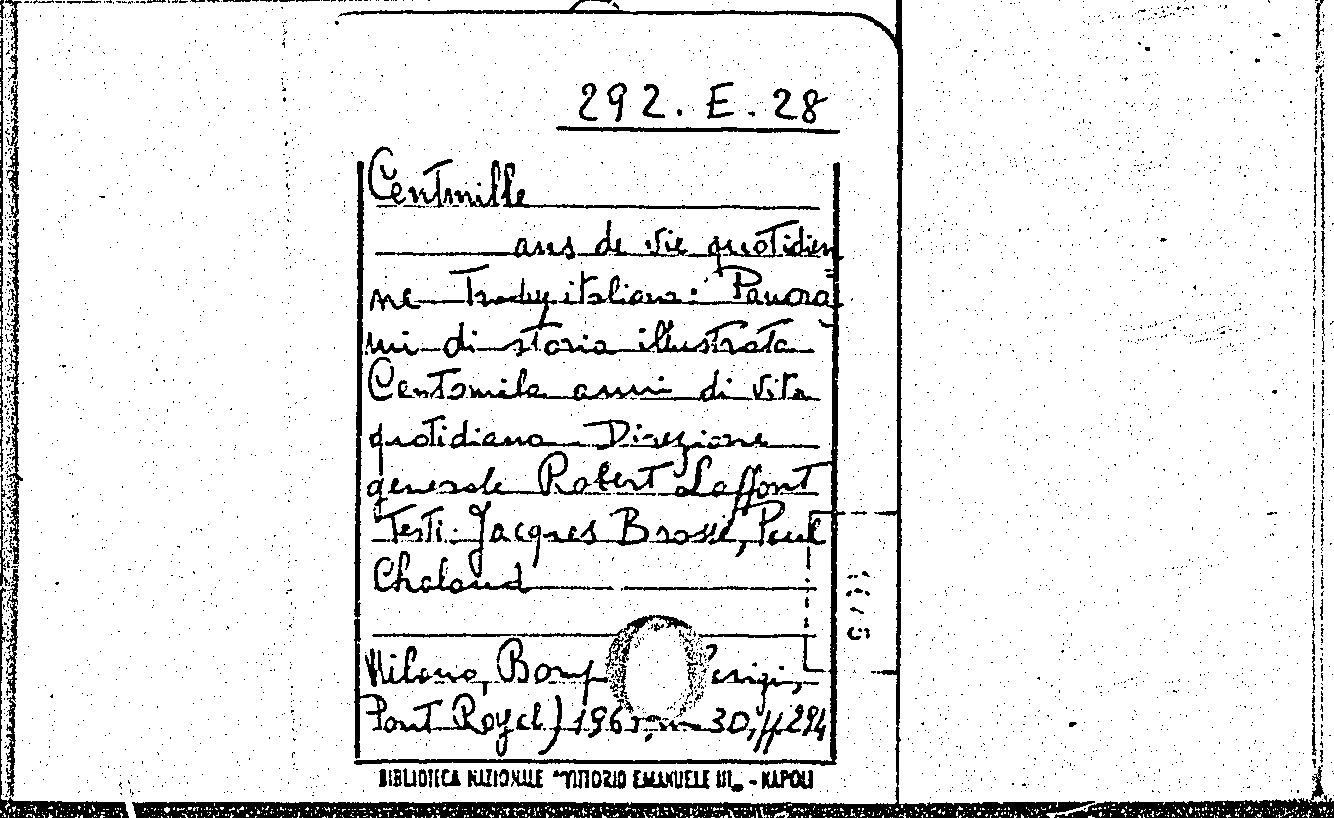 292. E. 28
Centmille
ans de vie quotidien
ne Trady italiana: Panora
mi di storia illustrata
Centomila anni di vita
quotidiana Direzione
generale Robert Laffont
Testi: Jacques Brosse, Paul
Chaland
Milano, Bomp
Pont Royal) 196 30, pp 294
BIBLIOTECA NAZIONALE "VITTORIO EMANUELE III„ - NAPOLI